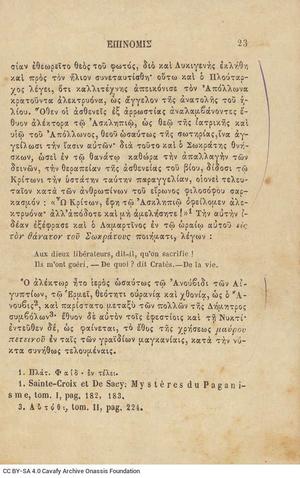 ΕΠΙΝΟΜΙΣ 23
σίαν ἐθεωρεῖτο θεὸς τοῦ φωτός, διὸ καὶ Λυκιγενὴς ἐκλήθη
καὶ πρὸς τὸν ἥλιον συνεταυτίσθη· οὕτω καὶ ὁ Πλούταρ-
χος λέγει, ὅτι καλλιτέχνης ἀπεικόνισε τὸν Ἀπόλλωνα
κρατοῦντα ἀλεκτρυόνα, ὡς ἄγγελον τῆς ἀνατολῆς τοῦ ἡ-
λίου. Ὅθεν οἱ ἀσθενεῖς ἐξ ἀρρωστίας ἀναλαμβάνοντες ἔ-
θυον ἀλέκτορα τῷ Ἀσκληπιῷ, ὡς θεῷ τῆς ἰατρικῆς καὶ
υἱῷ τοῦ Ἀπόλλωνος, θεοῦ ὡσαύτως τῆς σωτηρίας, ἵνα ἀγ-
γείλωσι τὴν ἴασιν αὐτῶν· διὰ τοῦτο καὶ ὁ Σωκράτης θνή-
σκων, ὡσεὶ ἐν τῷ θανάτῳ καθεώρα τὴν ἀπαλλαγὴν τῶν
δεινῶν, τὴν θεραπείαν τῆς ἀσθενείας τοῦ βίου, δίδοσι τῷ
Κρίτωνι τὴν ὑστάτην ταύτην παραγγελίαν, οἱονεὶ τελευ-
ταῖον κατὰ τῶν ἀνθρωπίνων τοῦ εἴρωνος φιλοσόφου σαρ-
κασμόν : «Ὦ Κρίτων, ἔφη, τῷ Ἀσκληπιῷ ὀφείλομεν ἀλε-
κτρυόνα· ἀλλ' ἀπόδοτε καὶ μὴ ἀμελήσητε !»¹ Τὴν αὐτὴν ἰ-
δέαν ἐξέφρασε καὶ ὁ Λαμαρτῖνος ἐν τῷ ὡραίῳ αὐτοῦ εἰς
τὸν θάνατον τοῦ Σωκράτους ποιήματι, λέγων :
Aux dieux libérateurs, dit-il, qu'on sacrifie !
Ils m'ont guéri. — De quoi ? dit Cratés.— De la vie.
Ὁ ἀλέκτωρ ἦτο ἱερὸς ὡσαύτως τῷ Ἀνούβιδι τῶν Αἰ-
γυπτίων, τῷ Ἑρμεῖ, θεότητι οὐρανίᾳ καὶ χθονίᾳ, ὡς ὁ Ἄ-
νουβις², καὶ παρίστατο μεταξὺ τῶν πολλῶν τῆς Δήμητρος
συμβόλων³· ἔθυον δὲ αὐτὸν τοῖς ἐφεστίοις καὶ τῇ Νυκτί·
ἐντεῦθεν δέ, ὡς φαίνεται, τὸ ἔθος τῆς χρήσεως μαύρου
πετεινοῦ ἐν ταῖς τῶν γραϊδίων μαγκανίαις, κατὰ τὴν νύ-
κτα συνήθως τελουμέναις.
1. Πλάτ. Φαίδ· ἐν τέλει.
1. Sainte-Croix et De Sacy: Mystères du Pagani-
sme, tom. I, pag, 182, 183.
3. Αὐτόθι, tom. II, pag. 224.
CC BY-SA 4.0 Cavafy Archive Onassis Foundation